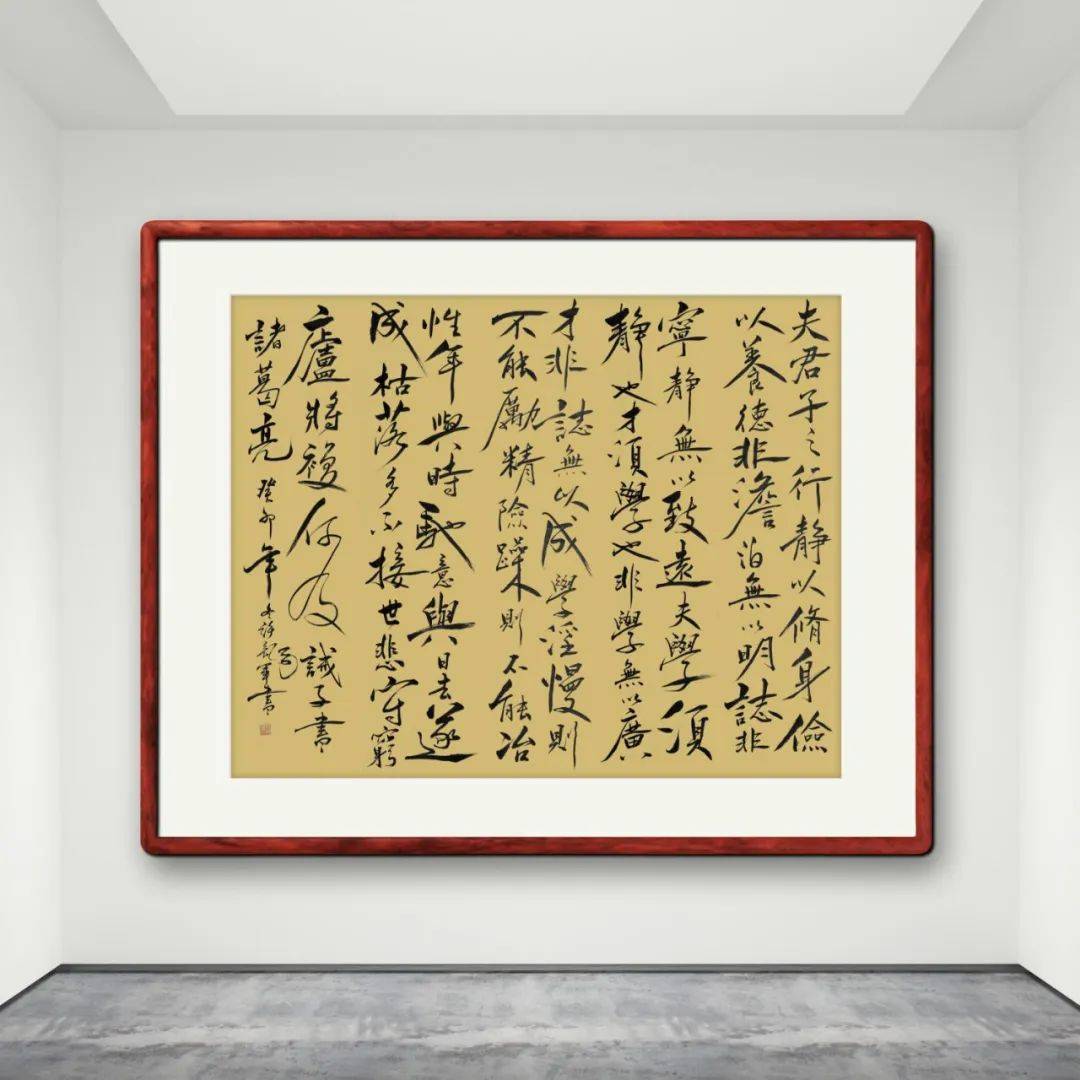 夫君子之行靜以脩身儉
以養德非澹泊無以明誌非
寧靜無以致遠夫學須
靜也才須學也非學無以廣
才非誌無以成學淫慢則
不能勵精險躁則不能冶
性年與時馳意與日去遂
成枯落多不接世悲守窮
廬將複何及誡子書
諸葛亮癸卯年冬許軍書